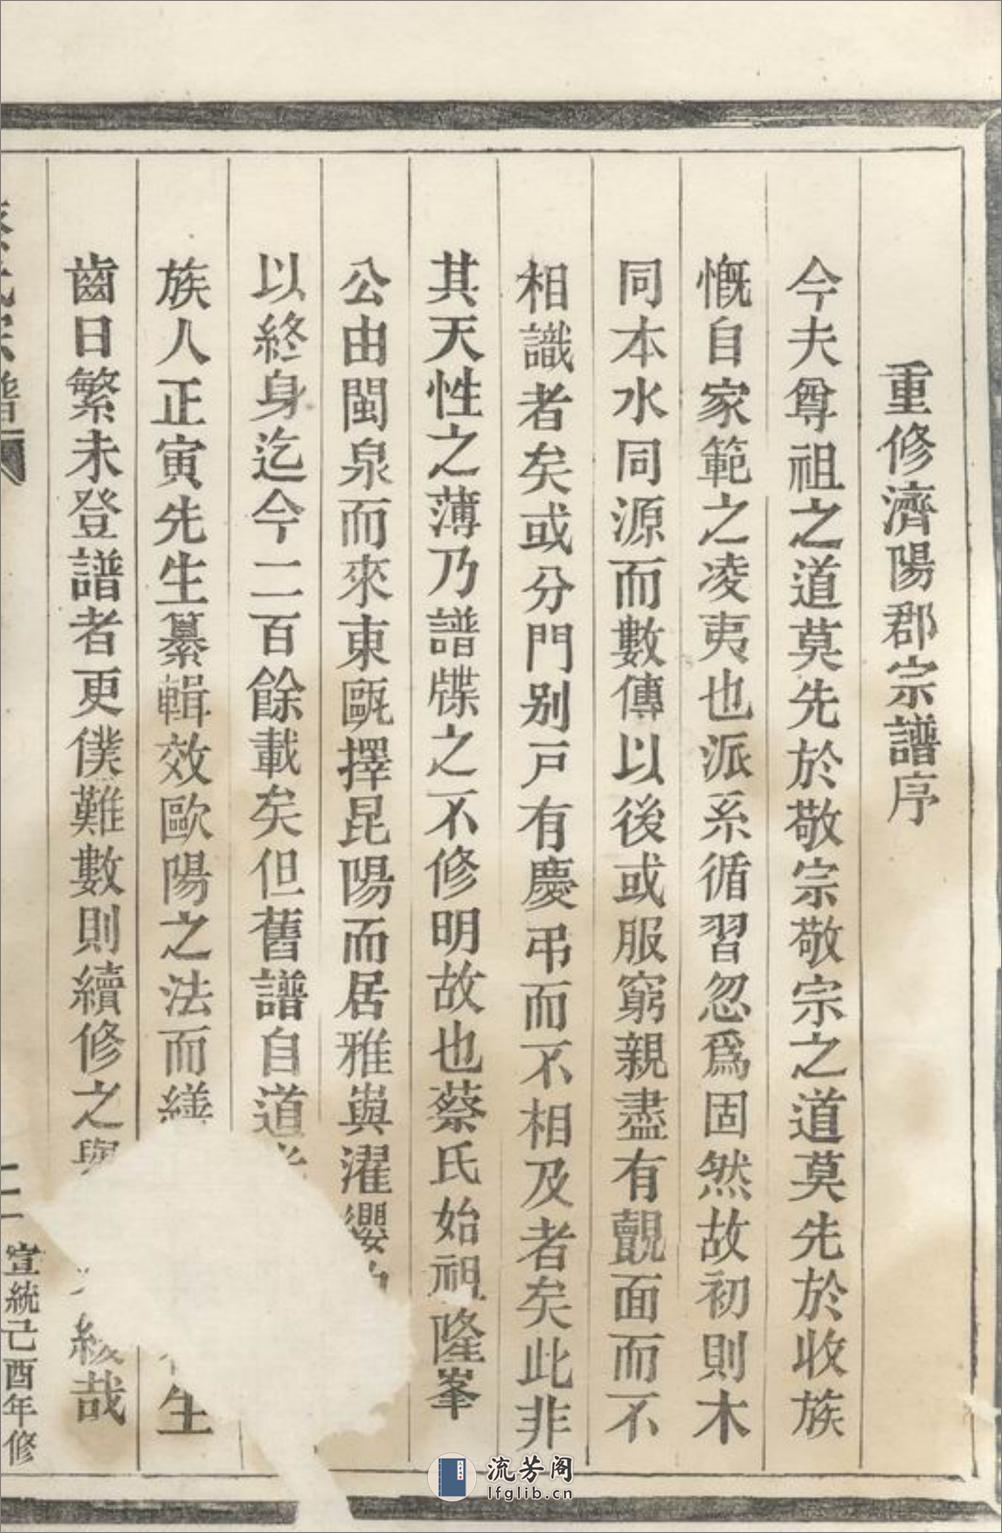 重修濟陽郡宗譜序
今夫尊祖之道莫先於敬宗敬宗之道莫先於收族
慨自家範之凌夷也派系循習忽爲固然故初則木
同本水同源而數傳以後或服窮親盡有覿面而不
相識者矣或分門别戸有慶弔而不相及者矣此非
其天性之薄乃譜牒之不修明故也蔡氏始祖隆峯
公由閩泉而來東甌擇昆陽而居雅與濯纓
以終身迄今二百餘載矣但舊譜自道光
族人正寅先生纂輯效歐陽之法而繕 生
齒日繁未登譜者更僕難數則續修之舉 緩哉
氏宗譜
宣統己酉年修
流芳阁
lfglib.cn